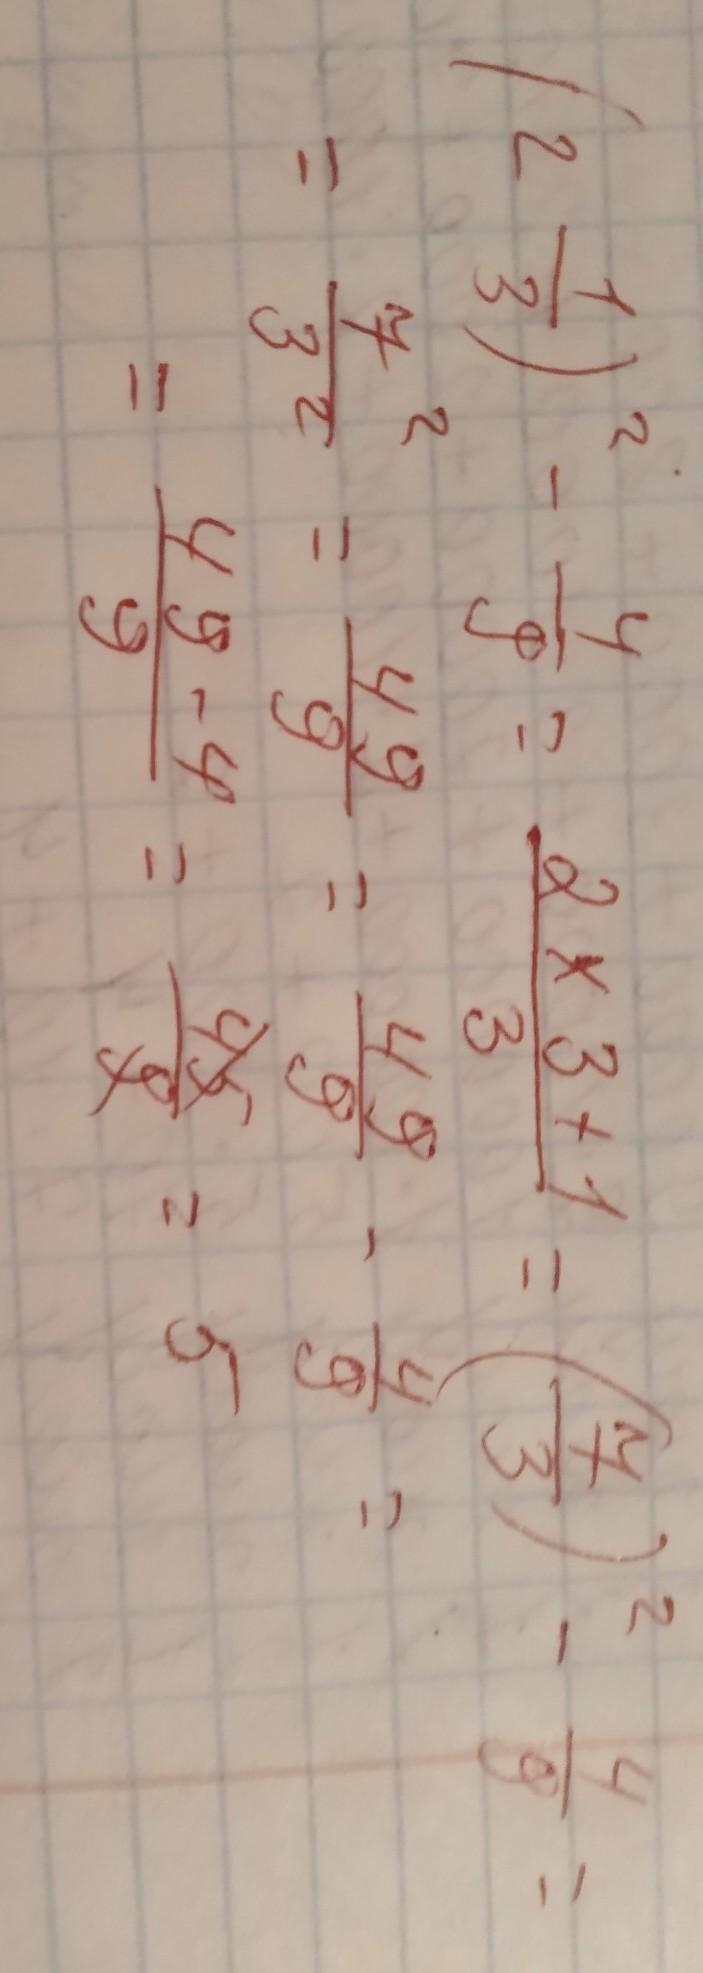 (2 1/3)² - 4/9 = (2 × 3 + 1)/3 = (7/3)² - 4/9 =
= 7²/3² = 49/9 = 49/9 - 4/9 =
= (49 - 4)/9 = 45/9 = 5